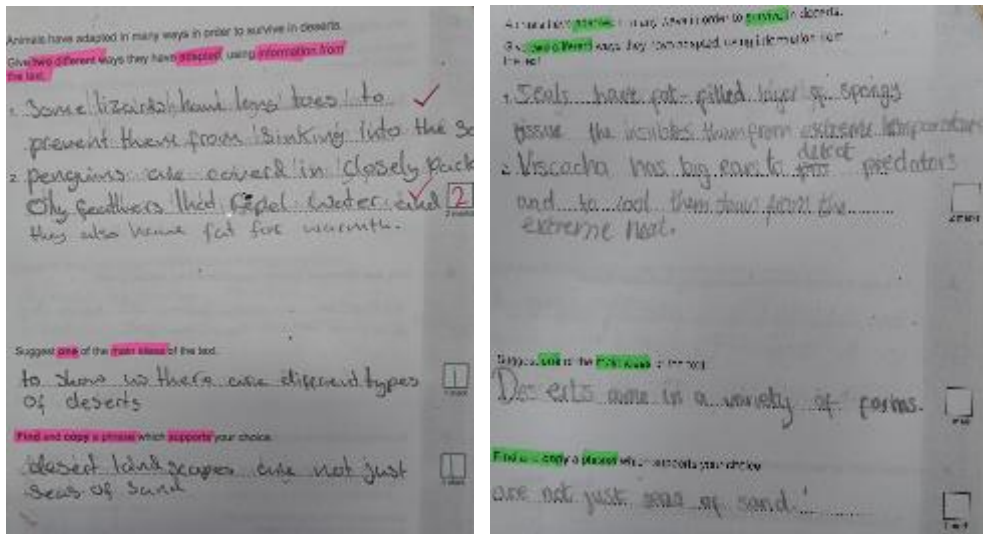 Animals have adapted in many ways in order to survive in deserts.
Give two different ways they have adapted, using information from
the text.
1. Some lizards have long toes to
prevent them from sinking into the
2. penguins are coverd in closely pack
Oily feathers that repel water and
2
they also have fat for warmth.
Suggest one of the main ideas of the text.
to show us there are different types
of deserts
1
Find and copy a phrase which supports your choice.
desert landscapes are not just
seas of sand
1
Animals have adapted in many ways in order to survive in deserts.
Give two different ways they have adapted, using information from
the text
1. Seals have fat-filled layer of spongy
tissue the insulates them from extreme temperatures
detect
2. Viscacha has big ears to predators
and to cool them down from the
extreme heat.
Suggest one of the main ideas of the text.
Deserts come in a variety of forms.
Find and copy a phrase which supports your choice
are not just seas of sand.